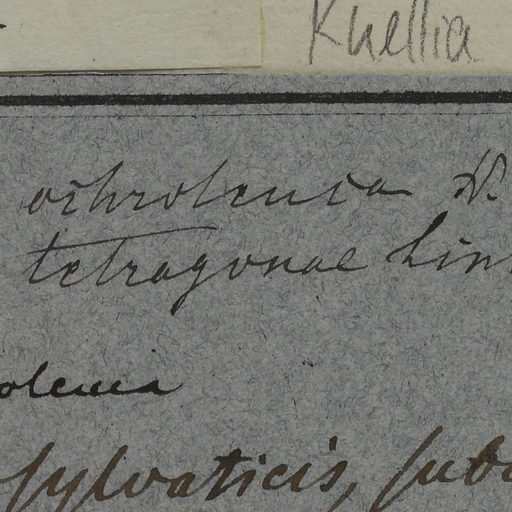 Ruellia
ochroleuca N.
tetragonae Lin
oleuca
sylvaticis, sub